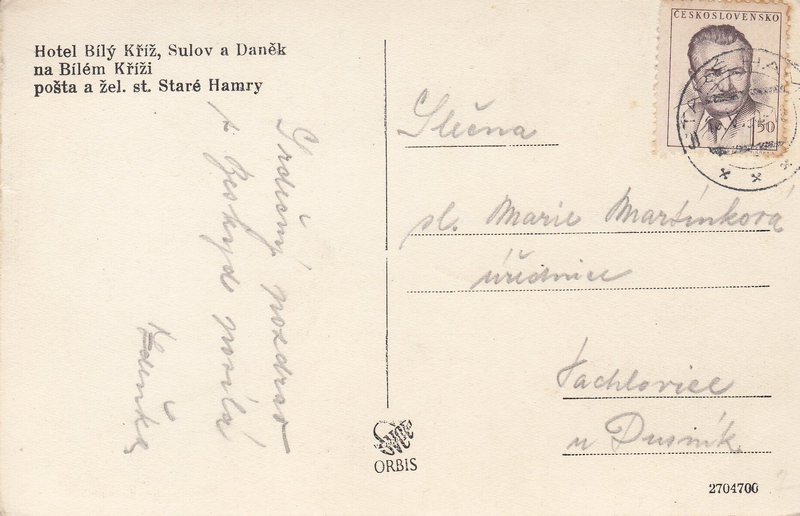 Hotel Bílý Kříž, Sulov a Daněk
na Bílém Kříži
pošta a žel. st. Staré Hamry
Srdečný pozdrav
z Beskyd posílá
Zdeňka
ČESKOSLOVENSKO
50
STARÉ HA
Slečna
sl. Marie Martínková
úřednice
Tachlovice
u Dusník.
ORBIS
2704700